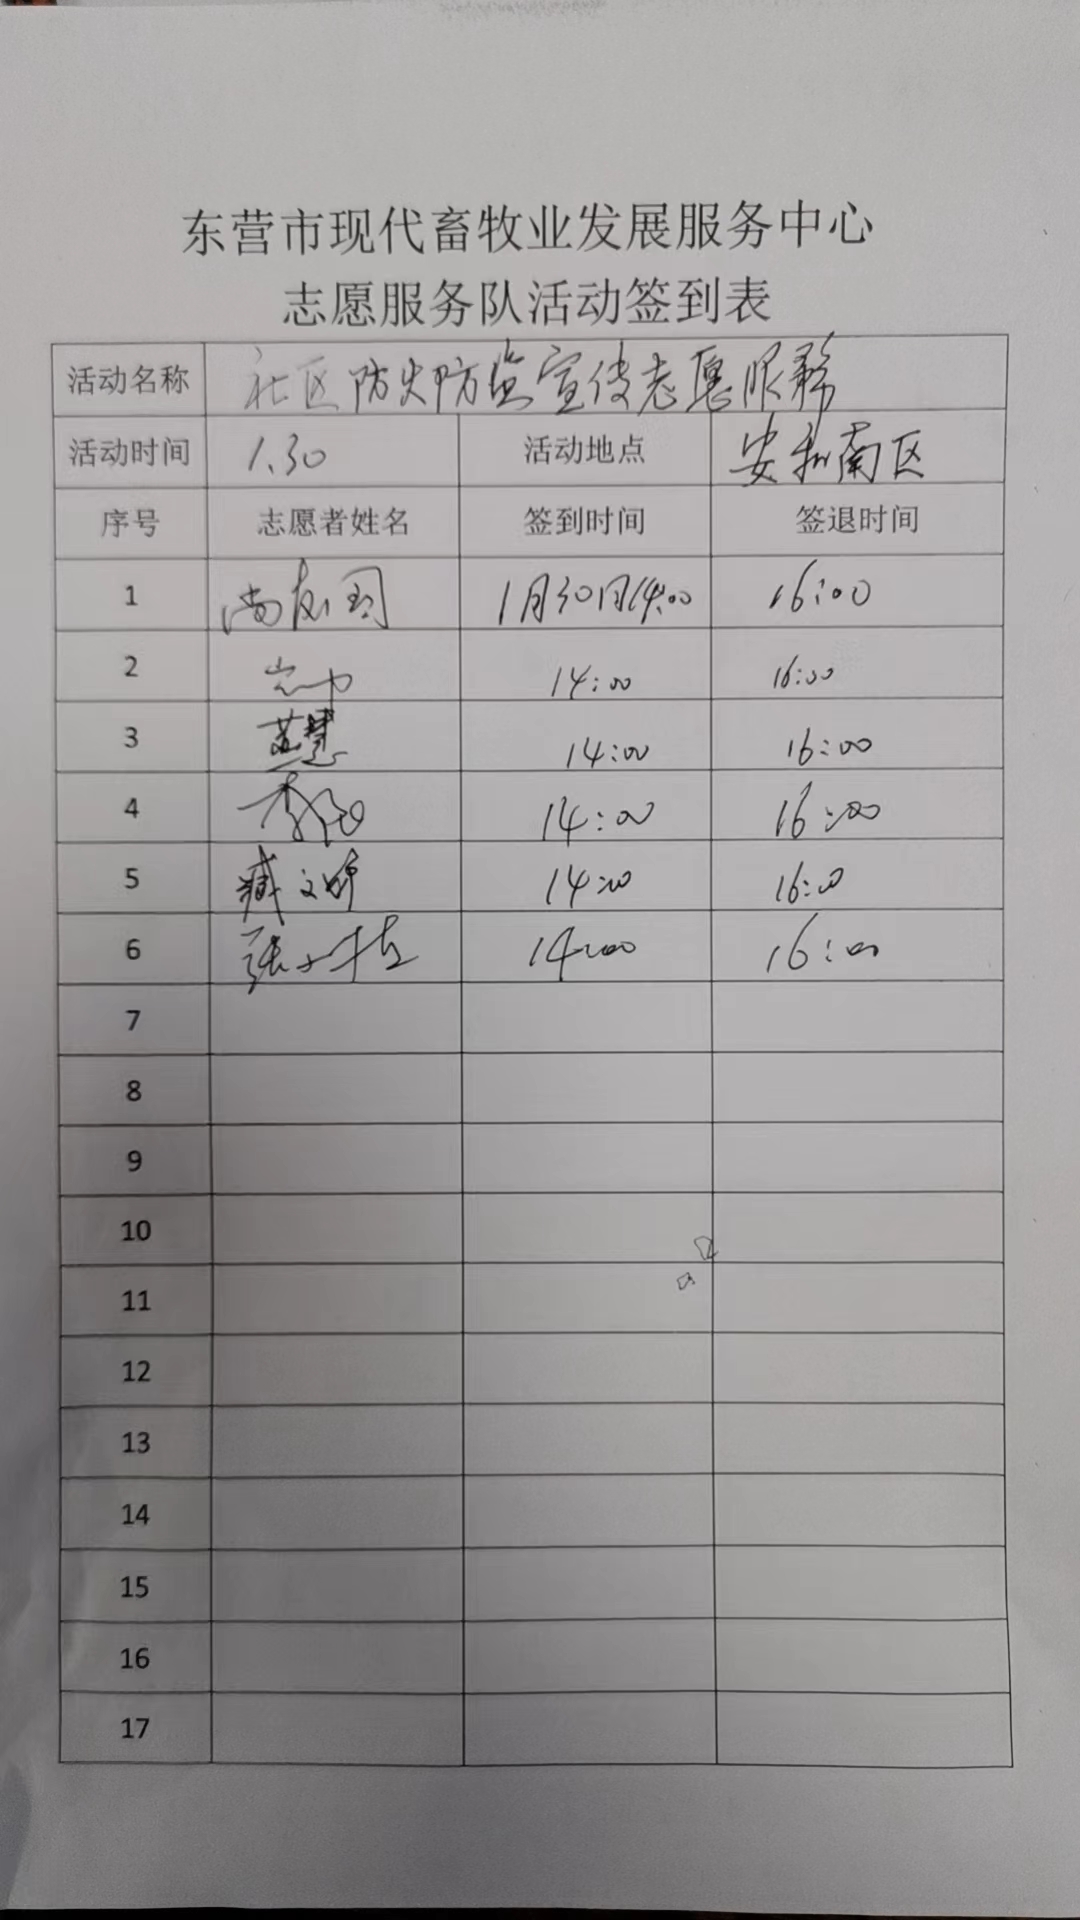 东营市现代畜牧业发展服务中心
志愿服务队活动签到表
活动名称 社区防火防盗宣传志愿服务
活动时间 1.30 活动地点 安和南区
序号 志愿者姓名 签到时间 签退时间
1 尚友国 1月30日14:00 16:00
2 14:00 16:00
3 苏慧 14:00 16:00
4 李 14:00 16:00
5 臧文婷 14:00 16:00
6 张 14:00 16:00
7
8
9
10
11
12
13
14
15
16
17